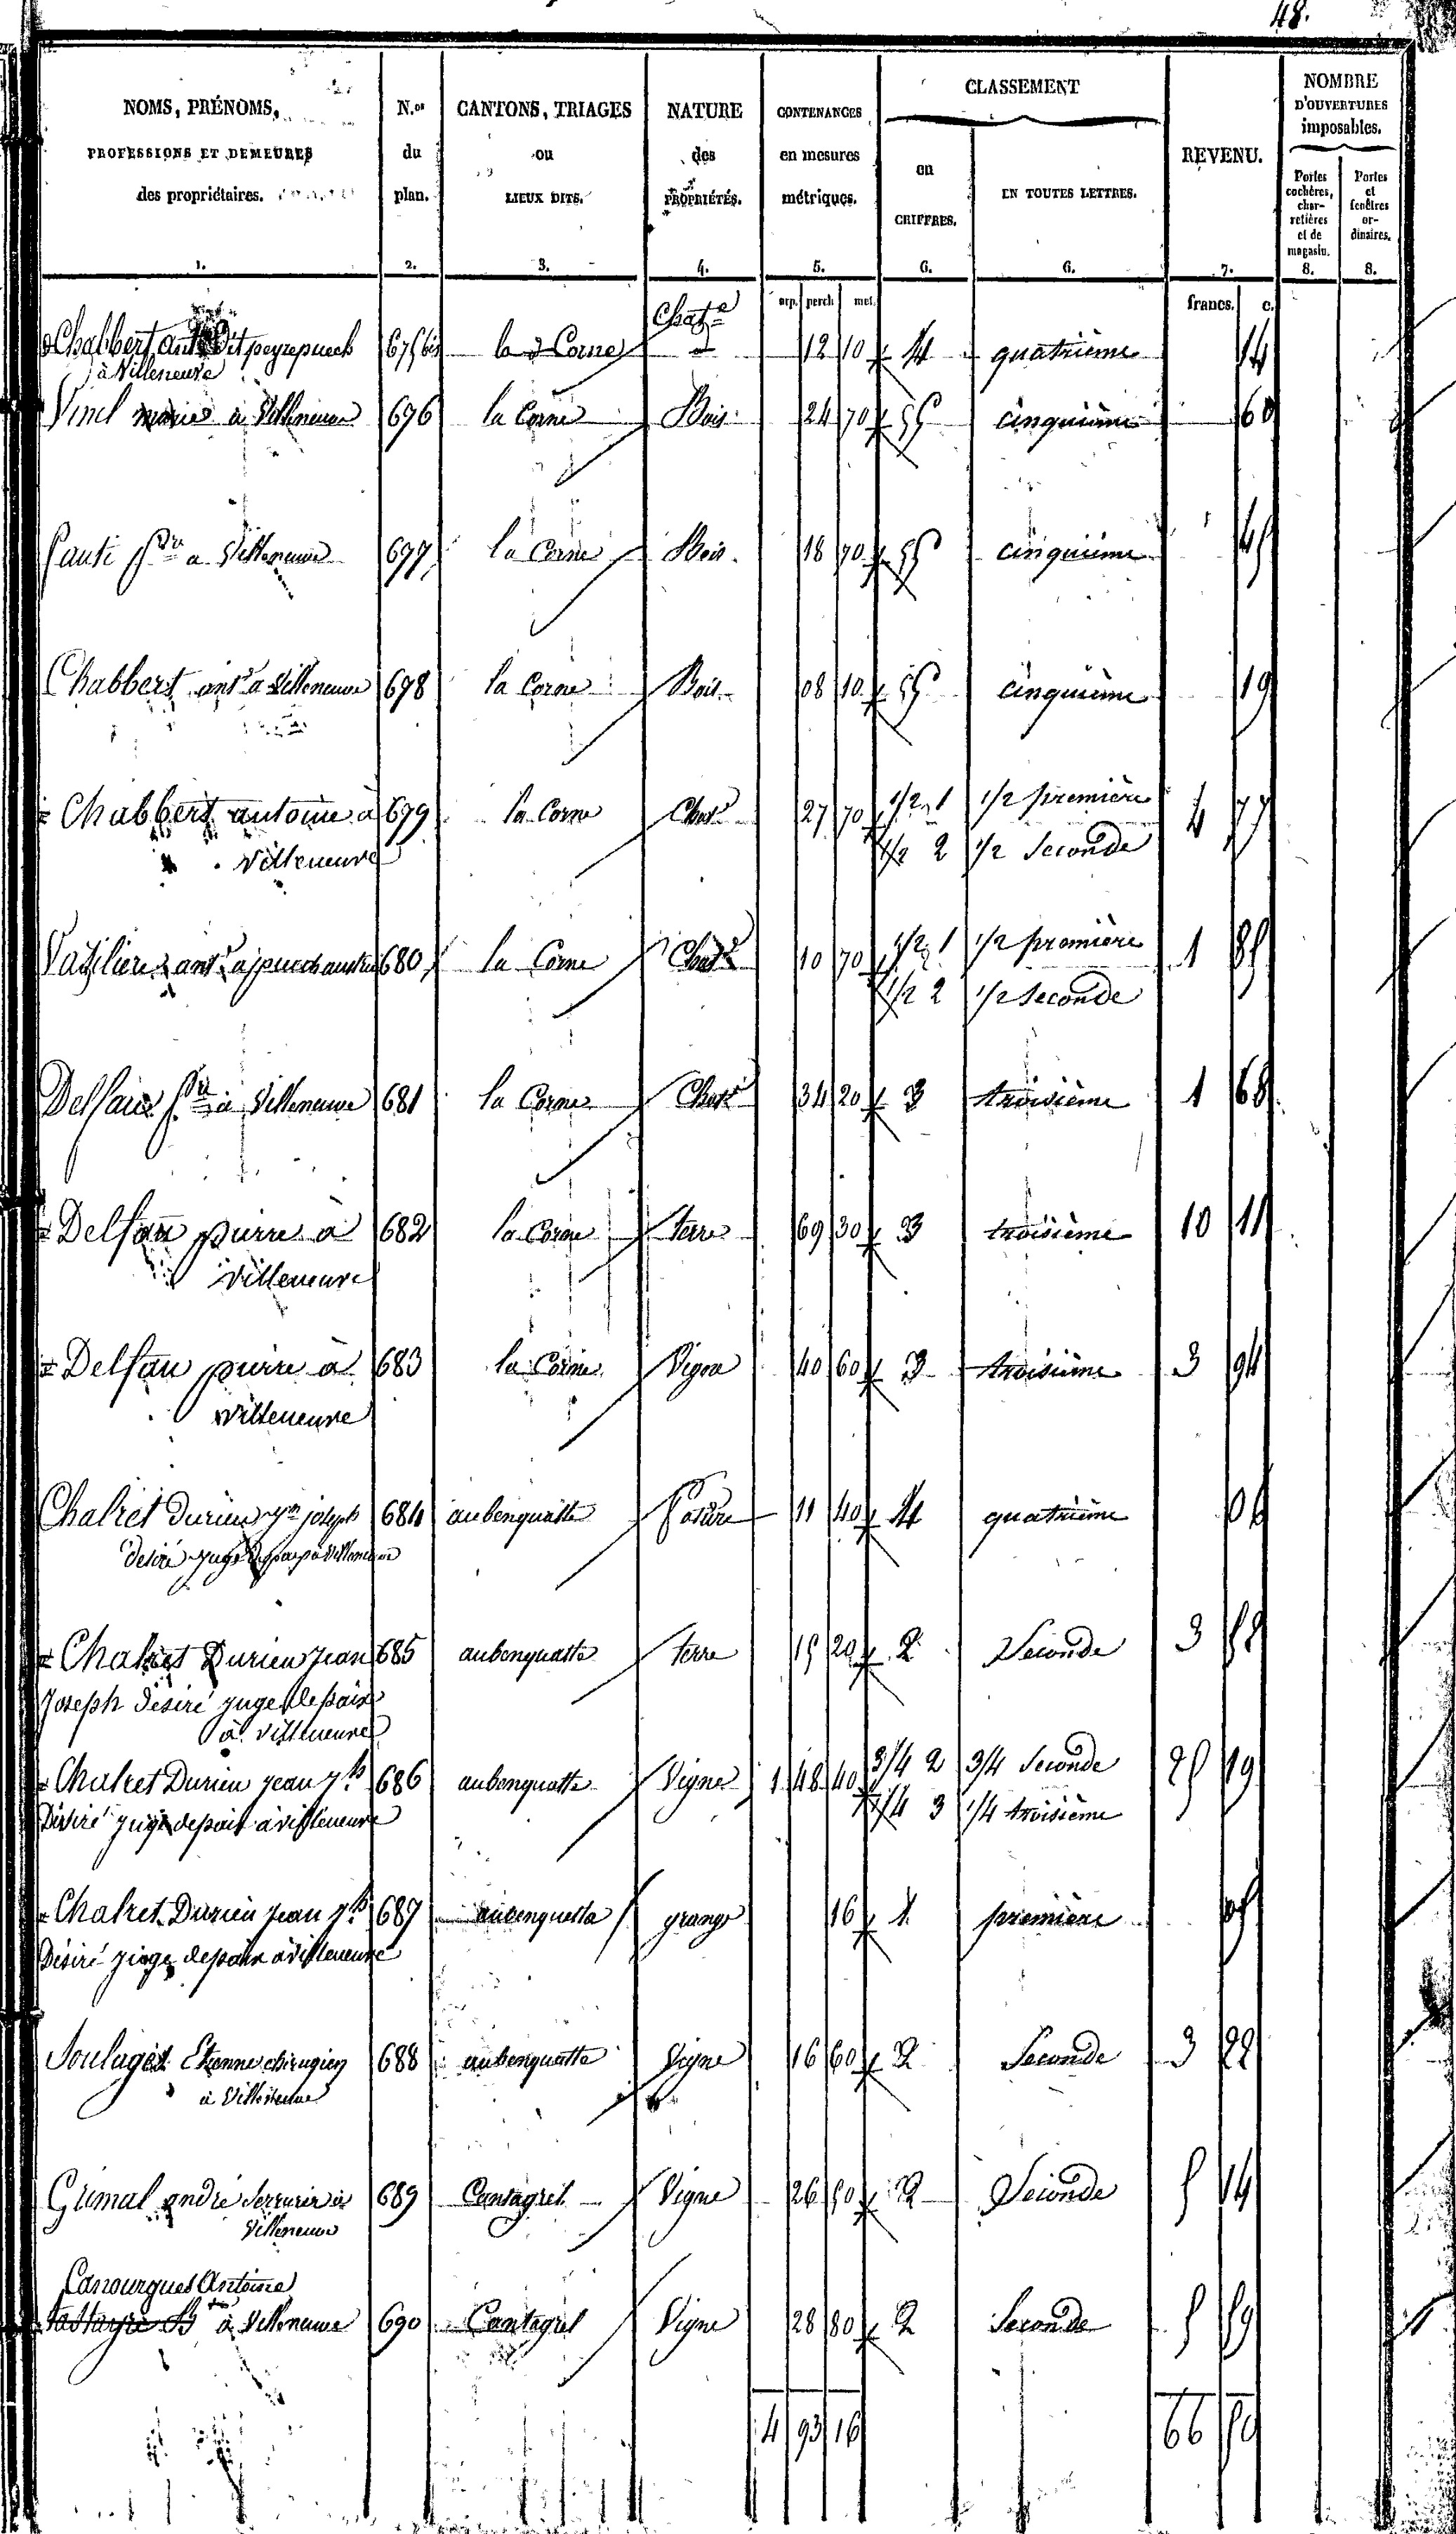 48.
NOMS, PRÉNOMS, PROFESSIONS ET DEMEURES des propriétaires. 1.
N.os du plan. 2.
CANTONS, TRIAGES ou LIEUX DITS. 3.
NATURE des PROPRIÉTÉS. 4.
CONTENANCES en mesures métriques. 5.
CLASSEMENT
en CHIFFRES. 6.
EN TOUTES LETTRES. 6.
REVENU. 7.
NOMBRE D'OUVERTURES imposables.
Portes cochères, charretières et de magasin. 8.
Portes et fenêtres ordinaires. 8.
arp. perch. met. francs. c.
Chabbert ant dit peyrepuech 675 bis la Corne Chat.e 12 10 4 quatrième 14
à Villeneuve
Vinel à Villeneuve 676 la Corne Bois 24 70 5 cinquième 60
à Villeneuve 677 la Corne Bois 18 70 5 cinquième 45
Chabbert ant.e à Villeneuve 678 la Corne Bois 08 10 5 cinquième 19
Chabbert antoine à 679 la Corne Chat 27 70 1/2 1 1/2 première 4 77
Villeneuve 1/2 2 1/2 Seconde
680 la Corne Chat 10 70 1/2 1 1/2 première 1 85
1/2 2 1/2 Seconde
à Villeneuve 681 la Corne Chat 34 20 3 troisième 1 68
Delfau pierre à 682 la Corne terre 69 30 3 troisième 10 11
Villeneuve
Delfau pierre à 683 la Corne Vigne 40 60 3 troisième 3 94
Villeneuve
Chalret Durieu jn joseph 684 aubenquatte Pature 11 40 4 quatrième 06
desiré juge de paix à Villeneuve
Chalret Durieu jean 685 aubenquatte terre 15 20 2 Seconde 3 58
joseph désiré juge de paix
à Villeneuve
Chalret Durieu jean jh 686 aubenquatte Vigne 1 48 40 3/4 2 3/4 Seconde 25 19
Désiré juge de paix à villeneuve 1/4 3 1/4 troisième
Chalret Durieu jean jh 687 aubenquatte grange 16 1 première 05
Désiré juge de paix à villeneuve
Soulages Etienne chirugien 688 aubenquatte Vigne 16 60 2 Seconde 3 22
à Villeneuve
Gumal andré Serrurier à 689 Cantagrel Vigne 26 50 2 Seconde 5 14
Villeneuve
Canourgues Antoine
à Villeneuve 690 Cantagrel Vigne 28 80 2 Seconde 5 59
4 93 16 66 59